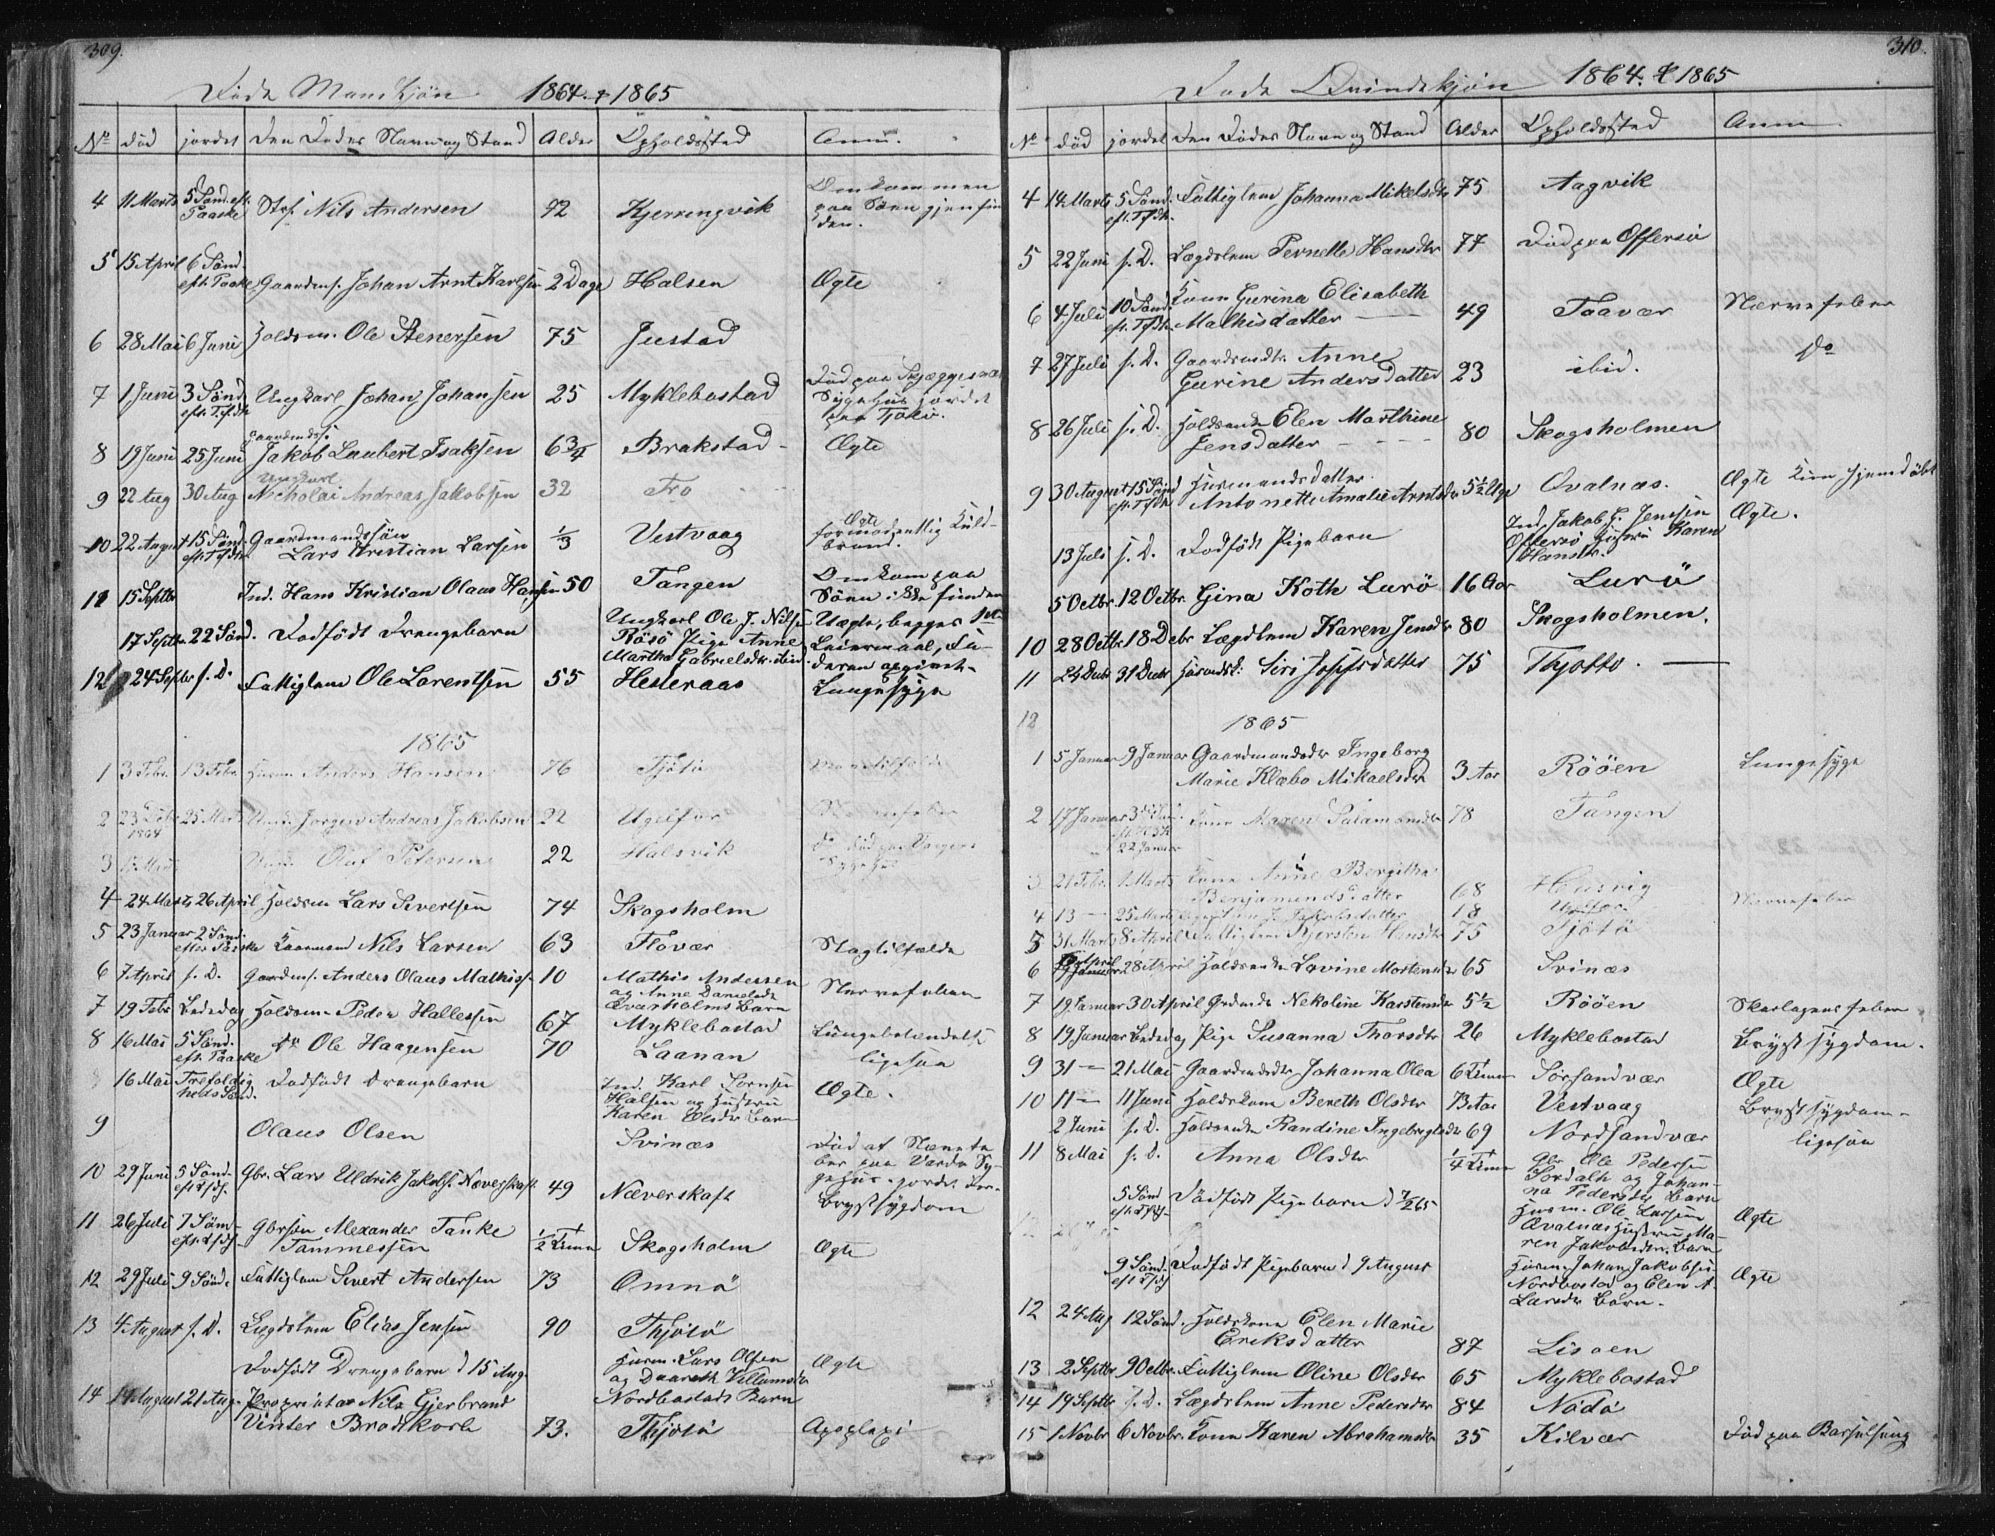 309.
Døde Mandkjøn 1864. & 1865
No død jordet Den Dødes Navn og Stand Alder Opholdssted Anm.
4 11 Marts 5 Sønd. eft. Paaske Strf. Nils Andersen 92 Kjerringvik Omkommen paa Søen gjenfunden.
5 15 April 6 Sønd. eft. Paaske Gaardms. Johan Arnt Karlsen 2 Dage Halsen Ægte
6 28 Mai 6 Juni Holdsm. Ole Stenersen 75 Justad
7 1 Juni 3 Sønd. eft. Trfdh. Ungkarl Johan Johansen 25 Myklebostad Død paa Sygehus jordet
8 19 Juni 25 Juni Gaardmds. Jakob Laubert Isaksen 6 3/4 Brakstad Ægte
9 22 Aug 30 Aug Ungkarl Nicholai Andreas Jakobsen 32 Tro
10 22 August 15 Sønd. eft. Trfdh. Gaardmandssøn Lars Kristian Larsen 1/3 Vestvaag Ægte formodentlig Koldbrand.
11 15 Septbr Ind. Hans Kristian Olaus Hansen 50 Tangen Omkom paa Søen ikke funden
17 Septbr. 22 Sønd. Dødfødt Drengebarn Ungkarl Ole J. Nilsen Røsø Pige Anne Martha Gabrielsdr. ibid. Uægte, begges 1ste Leiermaal, Faderen opgivet.
12 24 Septbr s. D. Fattiglem Ole Lorentsen 55 Hesteraas Lungesyge
1865
1 3 Febr. 13 Febr Husm. Anders Hansen 76 Tjøtø
2 23 Debr 1864 25 Marts Ungk. Jørgen Andreas Jakobsen 22 Ugelfor Nervefeber
3 Marts Ungk. Olaf Petersen 22 Halsvik do død paa Sygehus
4 24 Marts 26 April Holdsm Lars Sivertsen 74 Skogsholm
5 23 Januar 2 Sønd. efter Paaske Kaarmand Nils Larsen 63 Flovær Slagtilfælde
6 7 April s. D. Gaardms. Anders Olaus Mathiss. 10 Mathis Andersen og Anne Danielsdr Qvarholms Barn Nervefeber
7 19 Febr Bededag Holdsm. Peder Hallessen 67 Myklebostad Lungebetændelse
8 16 Mai 5 Sønd. eft. Paaske do Ole Haagensen 70 Laanan ligesaa
16 Mai Trefoldigheds Sønd. Dødfødt Drengebarn Ind. Karl Halsen og Hustru Karen Olsdr Barn Ægte.
9 Olaus Olsen Svinæs Død af paa Vardø Sygehus. jordet
10 29 Juni 5 Sønd. eft Trfdh. Gbr. Lars Uldrik Jakobs. Næverskaft 49 Næverskaft Brystsygdom
11 26 Juli 7 Søn. eft. Trfdh. Gbrsøn Alexander Tanke Tømmessen 1/2 Time Skogsholm Ægte
12 29 Juli 9 Sønd. Fattiglem Sivert Andersen 73 Omnø
13 4 August s. D. Lægdslem Elias Jensen 90 Thjøtø
Dødfødt Drengebarn d 15 Aug. Husm. Lars Olsen og Daareth Villumsdr Nordbostads Barn Ægte
14 14 August 21 Aug. Proprietær Nils Gjerbrand Vinter Brodtkorb 73. Thjøtø Apoplexi
310.
Døde Qvindekjøn 1864. & 1865
No død jordet Den Dødes Navn og Stand Alder Opholdssted Anm.
4 14 Marts 5 Sønd. eft. Trfdh. Fattiglem Johanna Mikelsdtr 75 Aagvik
5 22 Juni s. D. Lægdslem Pernelle Hansdtr 77 Død paa Offersø
6 4 Juli 10 Sønd. eft. Trfdh. Kone Gurina Elisabeth Mathisdatter 49 Taavær Nærvefeber
7 27 Juli s. D. Gaardmdtr. Anne Gurine Andersdatter 23 ibid. do
8 26 Juli s. D. Holdsenke Elen Marthine Jensdatter 80 Skogsholmen
9 30 August 15 Sønd eft. Trfdh Husmandsdatter Antonette Amalie Arntsdr 5 1/2 Uge Qvalnæs. Ægte kun hjemdøbt
13 Juli s. D. Dødfødt Pigebarn Ind. Jakob H. Jenssen Offersø Hustru Karen Hansdr. Ægte.
5 Octbr. 12 Octbr. Gina Koth Lurø 16 Aar Lurø
10 28 Octbr 18 Debr Lægdlem Karen Jensdr 80 Skogsholmen.
11 24 Decbr 31 Decbr Siri Josefsdatter 75 Thjøtto.
12 1865
1 5 Januar 9 Januar Gaardmandsdr Ingeborg Marie Klæbo Mikaelsdr 3 Aar Røöen Lungesyge
2 17 Januar 22 Januar Kone Maren Salamonsdr 78 Tangen
3 21 Febr. 1 Marts Kone Anne Bergitha Benjaminsdatter 68 Husvig
4 13 — 25 Marts Jakobsdatter 18 Nervefeber
5 31 Marts 8 April Fattiglem Kjersten Hansdr 75 Tjøtø
6 April 28 April Holdsenke Lovine Mortensdr 65 Svinæs
7 19 Januar 30 April Grdmdr Nekoline Karstensdr 5 1/2 Røöen Skarlagensfeber
8 19 Januar Bededag Pige Susanna Thorsdr 26 Myklebostad Brystsygdom.
9 31 — 21 Mai Gaardmdsdr Johanna Olea 6 Timer Sørsandvær Ægte
10 11 — 11 Juni Holdskone Bereth Olsdr 73 Aar Vestvaag Brystsygdom
2 Juni s. D. Holdsenke Randine Ingebrigtsdr 69 Nordsandvær ligesaa
11 8 Mai s. D. Anna Olsdr 1/4 Time Gbr Ole Pedersen Sørdalh og Johanna Pedersdr Barn
5 Sønd eft. Trfdh. Dødfødt Pigebarn d 7/2 65 Husm. Ole Larsen Qvalnæs Hustru Maren Jakobsdr. Barn Ægte
9 Sønd. eft Trfdh Dødfødt Pigebarn d 9 August Husm. Johan Jakobsen Nordbostad og Elen A. Larsdr Barn. Ægte
12 24 Aug 12 Sønd. Holdskone Elen Marie Eriksdatter 87 Lisøen
13 2 Septbr 9 Octbr. Fattiglem Oline Olsdr 65 Myklebostad
14 19 Septbr s. D. Lægdslem Anne Pedersdr 84 Nødø
15 1 Novbr 6 Novbr. Kone Karen Abrahamsdr 35 Kilvær Død paa Barselseng